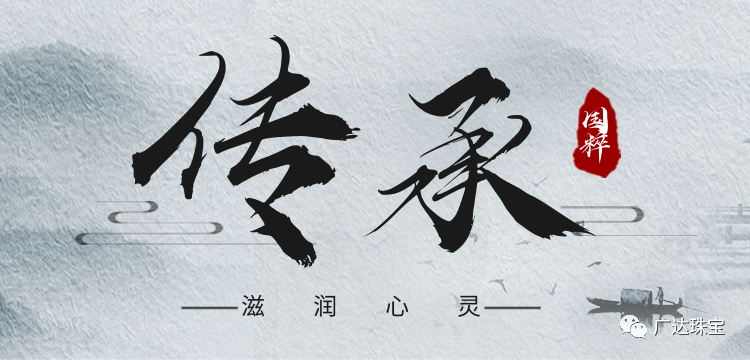 传承
国粹
——滋润心灵——
广达珠宝